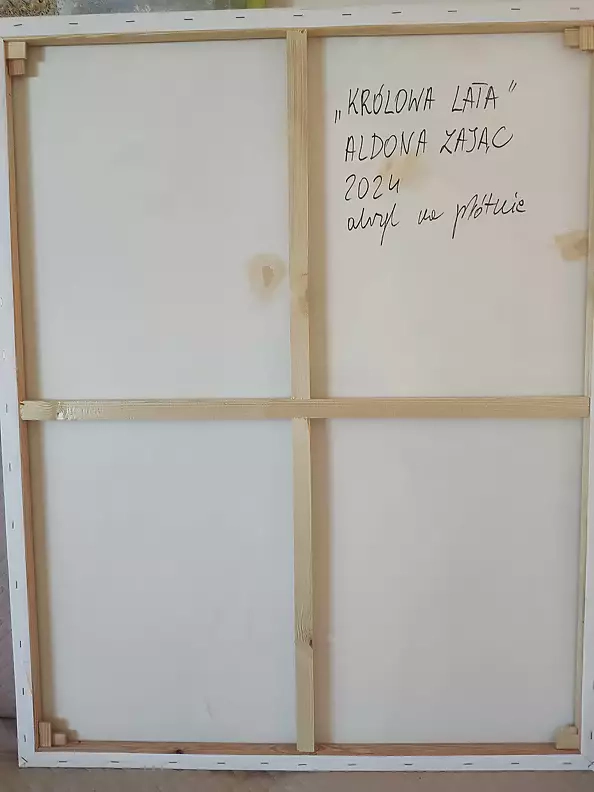 „KRÓLOWA LATA"
ALDONA ZAJĄC
2024
akryl na płótnie